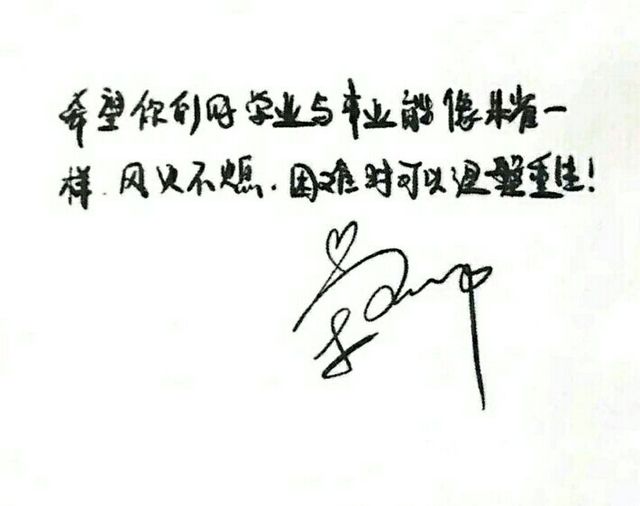 希望你们的学业与事业能像朱雀一
样.风火不熄.困难时可以涅槃重生!